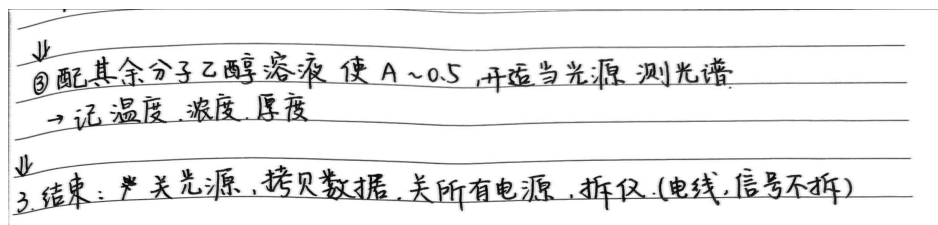 ⇓
③配其余分子乙醇溶液 使 A~0.5,开适当光源 测光谱.
→记温度.浓度.厚度
⇓
3.结束: 关光源,拷贝数据.关所有电源.拆仪.(电线,信号不拆)